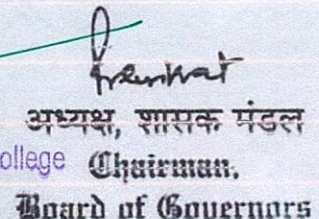 अध्यक्ष, शासक मंडल
ollege Chairman,
Board of Governors